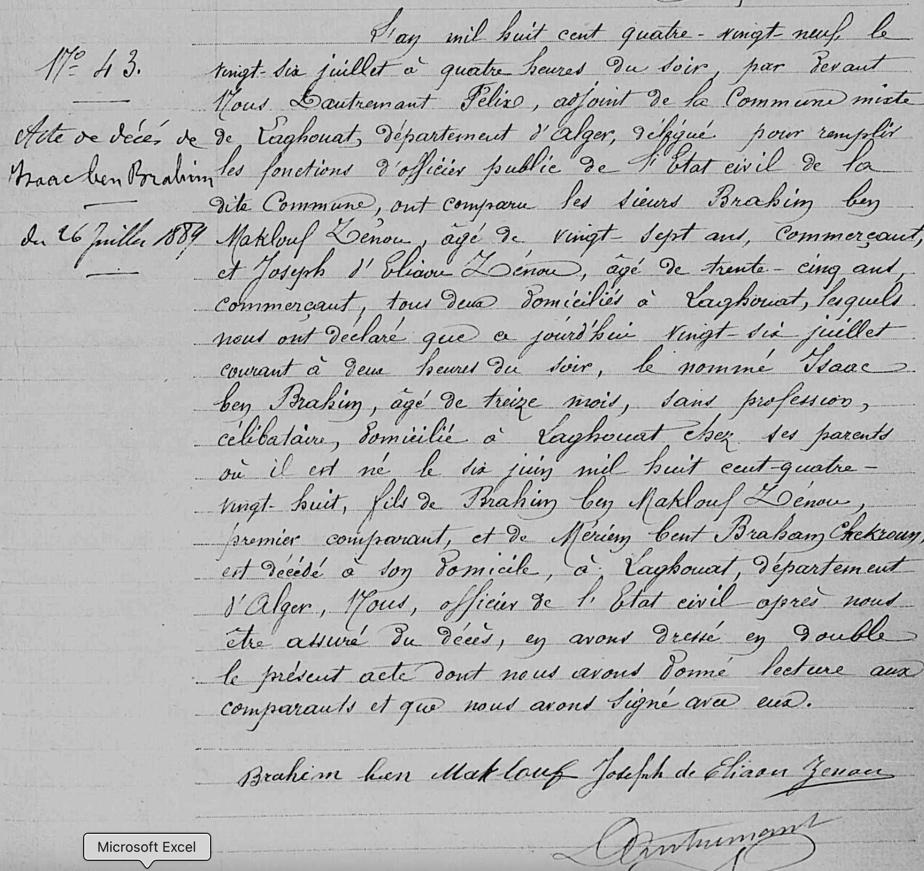 L'an mil huit cent quatre-vingt-neuf, le
N° 43.
vingt-six juillet à quatre heures du soir, par devant
Nous Dautremant Félix, adjoint de la Commune mixte
Acte de décès de
de Laghouat, département d'Alger, délégué pour remplir
Isaac ben Brahim
les fonctions d'officier public de l'Etat civil de la
dite Commune, ont comparu les sieurs Brahim ben
du 26 Juillet 1889
Maklouf Zénou, âgé de vingt-sept ans, commerçant,
et Joseph d'Eliaou Zénou, âgé de trente-cinq ans,
commerçant, tous deux domiciliés à Laghouat, lesquels
nous ont déclaré que ce jourd'hui vingt-six juillet
courant à deux heures du soir, le nommé Isaac
ben Brahim, âgé de treize mois, sans profession,
célibataire, domicilié à Laghouat chez ses parents
où il est né le six juin mil huit cent-quatre-
vingt-huit, fils de Brahim ben Maklouf Zénou,
premier comparant, et de Mériem bent Braham Chekroun,
est décédé à son domicile, à Laghouat, département
d'Alger, Nous, officier de l'Etat civil après nous
être assuré du décès, en avons dressé en double
le présent acte dont nous avons donné lecture aux
comparants et que nous avons signé avec eux.
Brahim ben Maklouf Joseph de Eliaou Zenou
Dautremant
Microsoft Excel